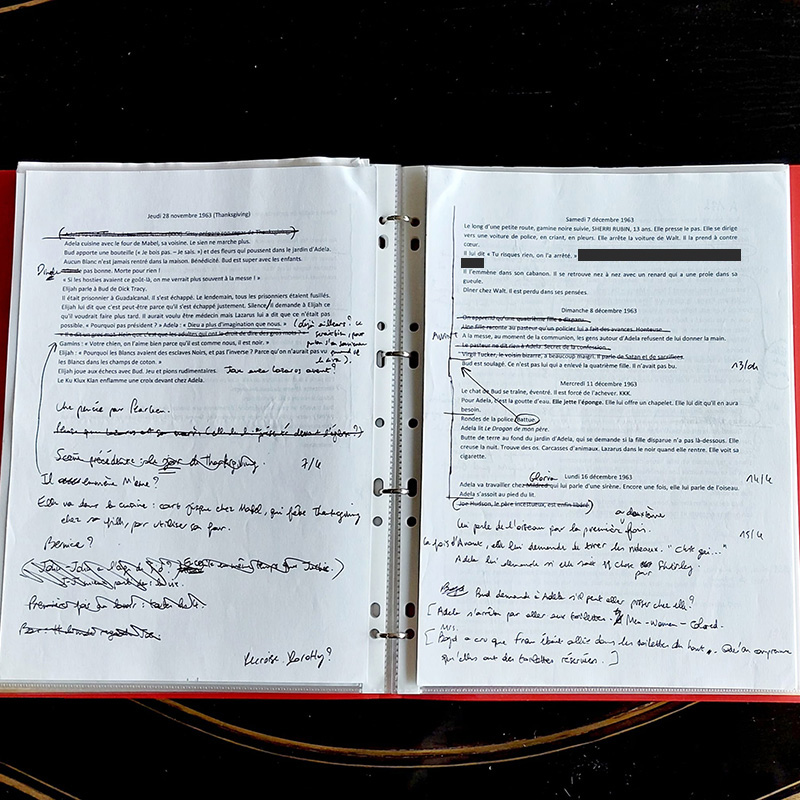 Jeudi 28 novembre 1963 (Thanksgiving)
Adela cuisine avec le four de Mabel, sa voisine. Le sien ne marche plus.
Bud apporte une bouteille (« Je bois pas. – Je sais. ») et des fleurs qui poussent dans le jardin d'Adela.
Aucun Blanc n'est jamais rentré dans la maison. Bénédicité. Bud est super avec les enfants.
Dinde pas bonne. Morte pour rien !
« Si les hosties avaient ce goût-là, on me verrait plus souvent à la messe ! »
Elijah parle à Bud de Dick Tracy.
Il était prisonnier à Guadalcanal. Il s'est échappé. Le lendemain, tous les prisonniers étaient fusillés.
Elijah lui dit que c'est peut-être parce qu'il s'est échappé justement. Silence. Il demande à Elijah ce
qu'il voudrait faire plus tard. Il aurait voulu être médecin mais Lazarus lui a dit que ce n'était pas
possible. « Pourquoi pas président ? » Adela : « Dieu a plus d'imagination que nous. »
Gamins : « Votre chien, on l'aime bien parce qu'il est comme nous, il est noir. »
Elijah : « Pourquoi les Blancs avaient des esclaves Noirs, et pas l'inverse ? Parce qu'on n'aurait pas vu
les Blancs dans les champs de coton. »
Elijah joue aux échecs avec Bud. Jeu et pions rudimentaires.
Le Ku Klux Klan enflamme une croix devant chez Adela.
Une pensée par
Scène précédente : jour de Thanksgiving. 7/4
Il emmène M'ame ?
Elle va dans la cuisine : court jusque chez Mabel, qui fête Thanksgiving
chez sa fille, pour utiliser son four.
Bernice ?
Dorothy ?
Samedi 7 décembre 1963
Le long d'une petite route, gamine noire suivie, SHERRI RUBIN, 13 ans. Elle presse le pas. Elle se dirige
vers une voiture de police, en criant, en pleurs. Elle arrête la voiture de Walt. Il la prend à contre
cœur.
Il lui dit « Tu risques rien, on l'a arrêté. »
Il l'emmène dans son cabanon. Il se retrouve nez à nez avec un renard qui a une proie dans sa
gueule.
Dîner chez Walt. Il est perdu dans ses pensées.
Dimanche 8 décembre 1963
On apprend qu'une quatrième fille a disparu.
Une fille raconte au pasteur qu'un policier lui a fait des avances. Honteuse.
A la messe, au moment de la communion, les gens autour d'Adela refusent de lui donner la main.
Le pasteur ne dit rien à Adela. Secret de la confession.
AVANT
Virgil Tucker, le voisin bizarre, a beaucoup maigri. Il parle de Satan et de sacrifices.
Bud est soulagé. Ce n'est pas lui qui a enlevé la quatrième fille. Il n'avait pas bu.
13/04
Mercredi 11 décembre 1963
Le chat de Bud se traîne, éventré. Il est forcé de l'achever. KKK.
Pour Adela, c'est la goutte d'eau. Elle jette l'éponge. Elle lui offre un chapelet. Elle lui dit qu'il en aura
besoin.
Rondes de la police. Battue.
Adela lit Le Dragon de mon père.
Butte de terre au fond du jardin d'Adela, qui se demande si la fille disparue n'a pas là-dessous. Elle
creuse la nuit. Trouve des os. Carcasses d'animaux. Lazarus dans le noir quand elle rentre. Elle voit sa
cigarette.
Lundi 16 décembre 1963
Gloria
14/4
Adela va travailler chez Mildred qui lui parle d'une sirène. Encore une fois, elle lui parle de l'oiseau.
Adela s'assoit au pied du lit.
Joe Hudson, le père incestueux, est enfin libéré.
Lui parle de l'oiseau pour la première fois.
deuxième
15/4
La fois d'Avant, elle lui demande de tirer les rideaux. "Chut
Adela lui demande si elle sait
pour Shirley
Bud demande à Adela s'il peut aller pisser chez elle ?
[ Adela s'arrête pas aller aux toilettes. Men - Women - Colored.
Mrs.
[ Boyd a cru que Fran était allée dans les toilettes du haut. Qu'on comprenne
qu'elles ont des toilettes réservées. ]